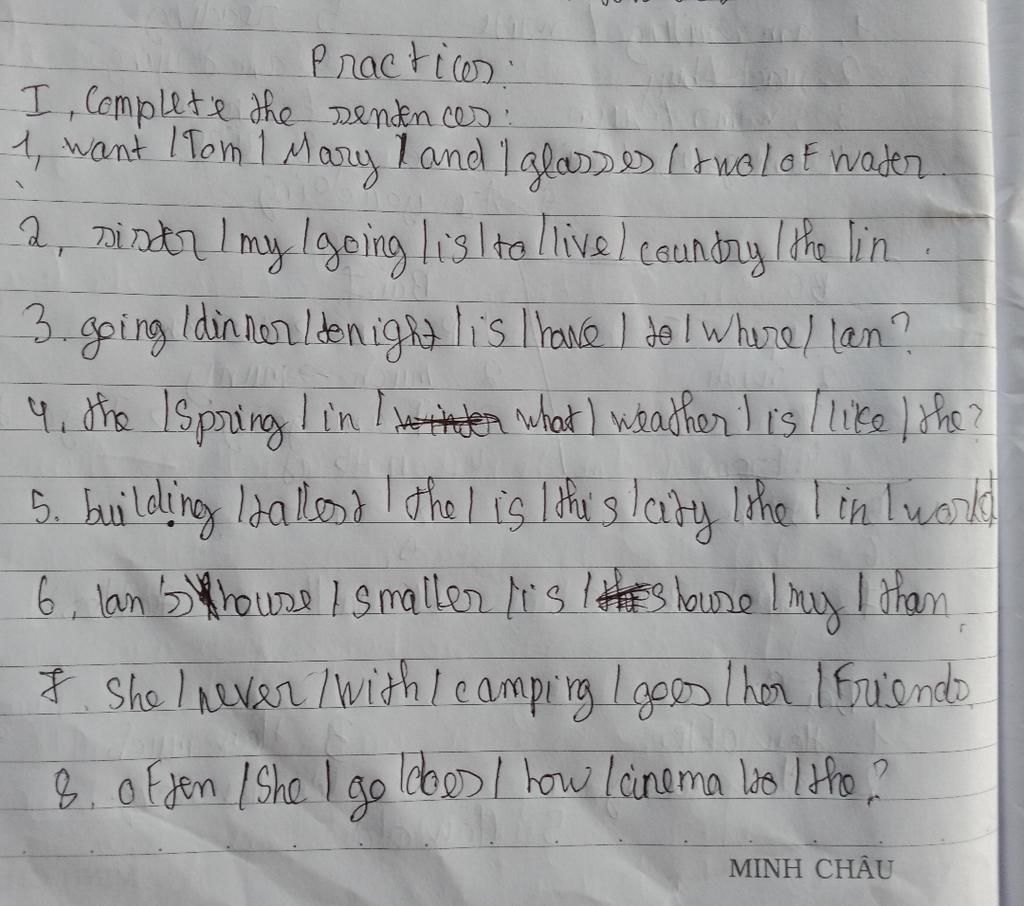 Practices:
I, Complete the sentences:
1, want / Tom / Mary / and / glasses / two / of water.
2, sister / my / going / is / to / live / country / the / in .
3. going / dinner / tonight / is / have / to / where / lan?
4, the / spring / in / what / weather / is / like / the?
5. building / tallest / the / is / this / city / the / in / world
6, lan's house / smaller / is / house / my / than.
7. She / never / with / camping / goes / her / friends.
8. often / She / go / does / how / cinema / to / the?
MINH CHÂU